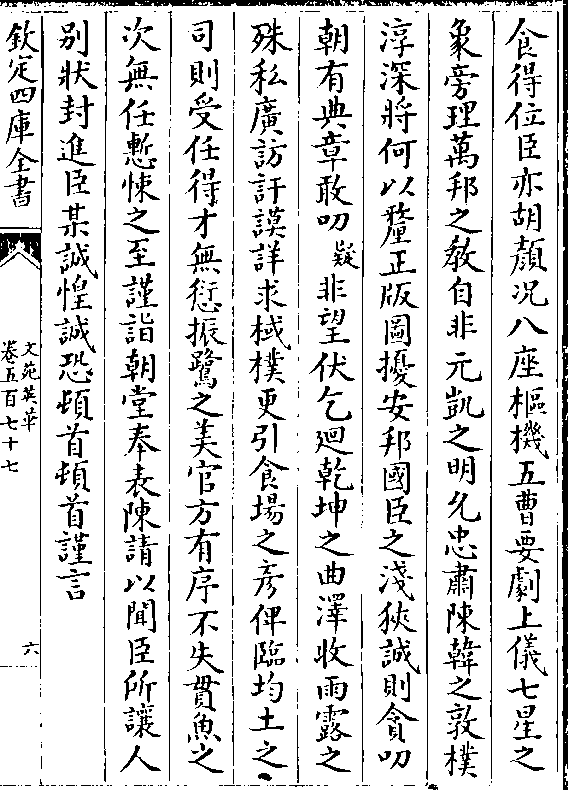 食得位臣亦胡顔況八座樞機五曹要劇上儀七星之
象旁理萬邦之教自非元凱之明允忠肅陳韓之敦樸
淳深將何以釐正版圖擾安邦國臣之淺狹誠則貪叨
朝有典章敢叨疑非望伏乞廻乾坤之曲澤收雨露之
殊私廣訪訏謨詳求棫樸更引食場之彦俾臨均土之
司則受任得才無愆振鷺之美官方有序不失貫魚之
次無任慙悚之至謹詣朝堂奉表陳請以聞臣所讓人
别狀封進臣某誠惶誠恐頓首頓首謹言
欽定四庫全書
文苑英華
卷五百七十七
六